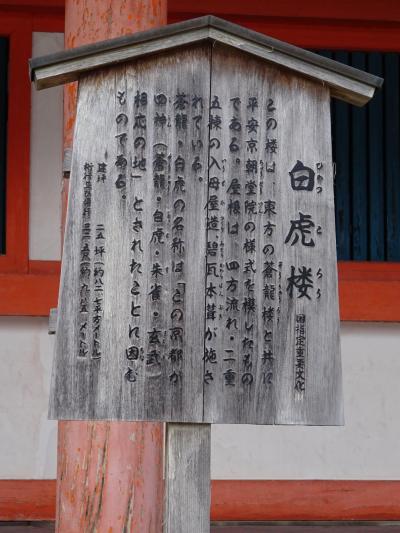 白虎楼
びゃっころう
国指定重要文化
この楼は、東方の蒼龍楼と共に
平安京朝堂院の様式を模したもの
である。屋根は、四方流れ、二重
五棟の入母屋造、碧瓦本葺が施さ
れている。
蒼龍・白虎の名称は「この京都が
四神(蒼龍・白虎・朱雀・玄武)
相応の地」とされたことに因む
ものである。
建坪 二五坪(約八二・七平方メートル)